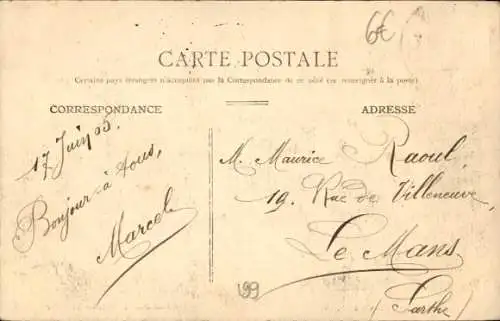 6€
CARTE POSTALE
Certains pays étrangers n'acceptent pas la Correspondance de ce côté (se renseigner à la poste)
CORRESPONDANCE
ADRESSE
17 Juin 05.
Bonjour à tous,
Marcel
M. Maurice Raoul,
19, Rue de Villeneuve,
Le Mans
(Sarthe)
199